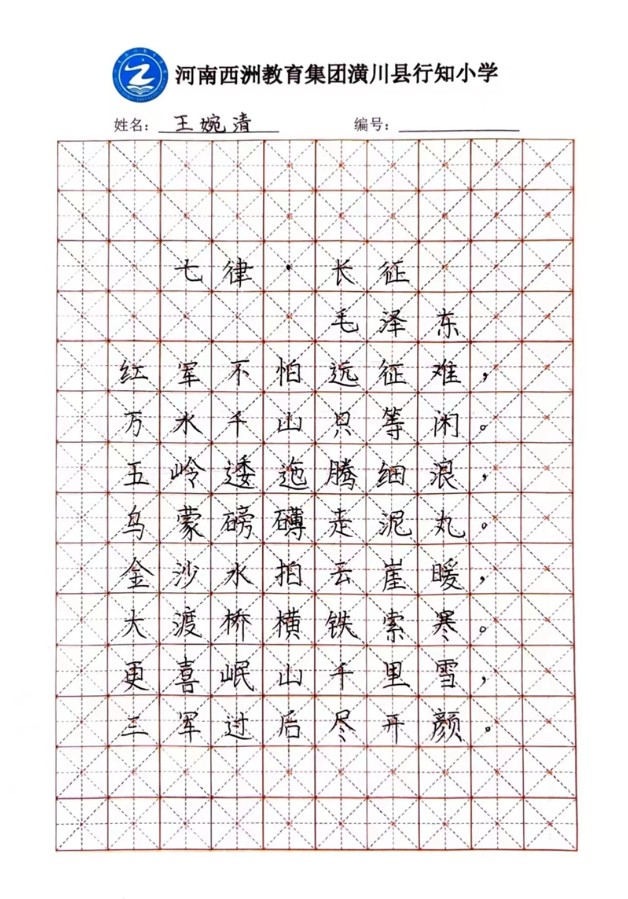 河南西洲教育集团潢川县行知小学
姓名：王婉清 编号：
七律·长征
毛泽东
红军不怕远征难，
万水千山只等闲。
五岭逶迤腾细浪，
乌蒙磅礴走泥丸。
金沙水拍云崖暖，
大渡桥横铁索寒。
更喜岷山千里雪，
三军过后尽开颜。